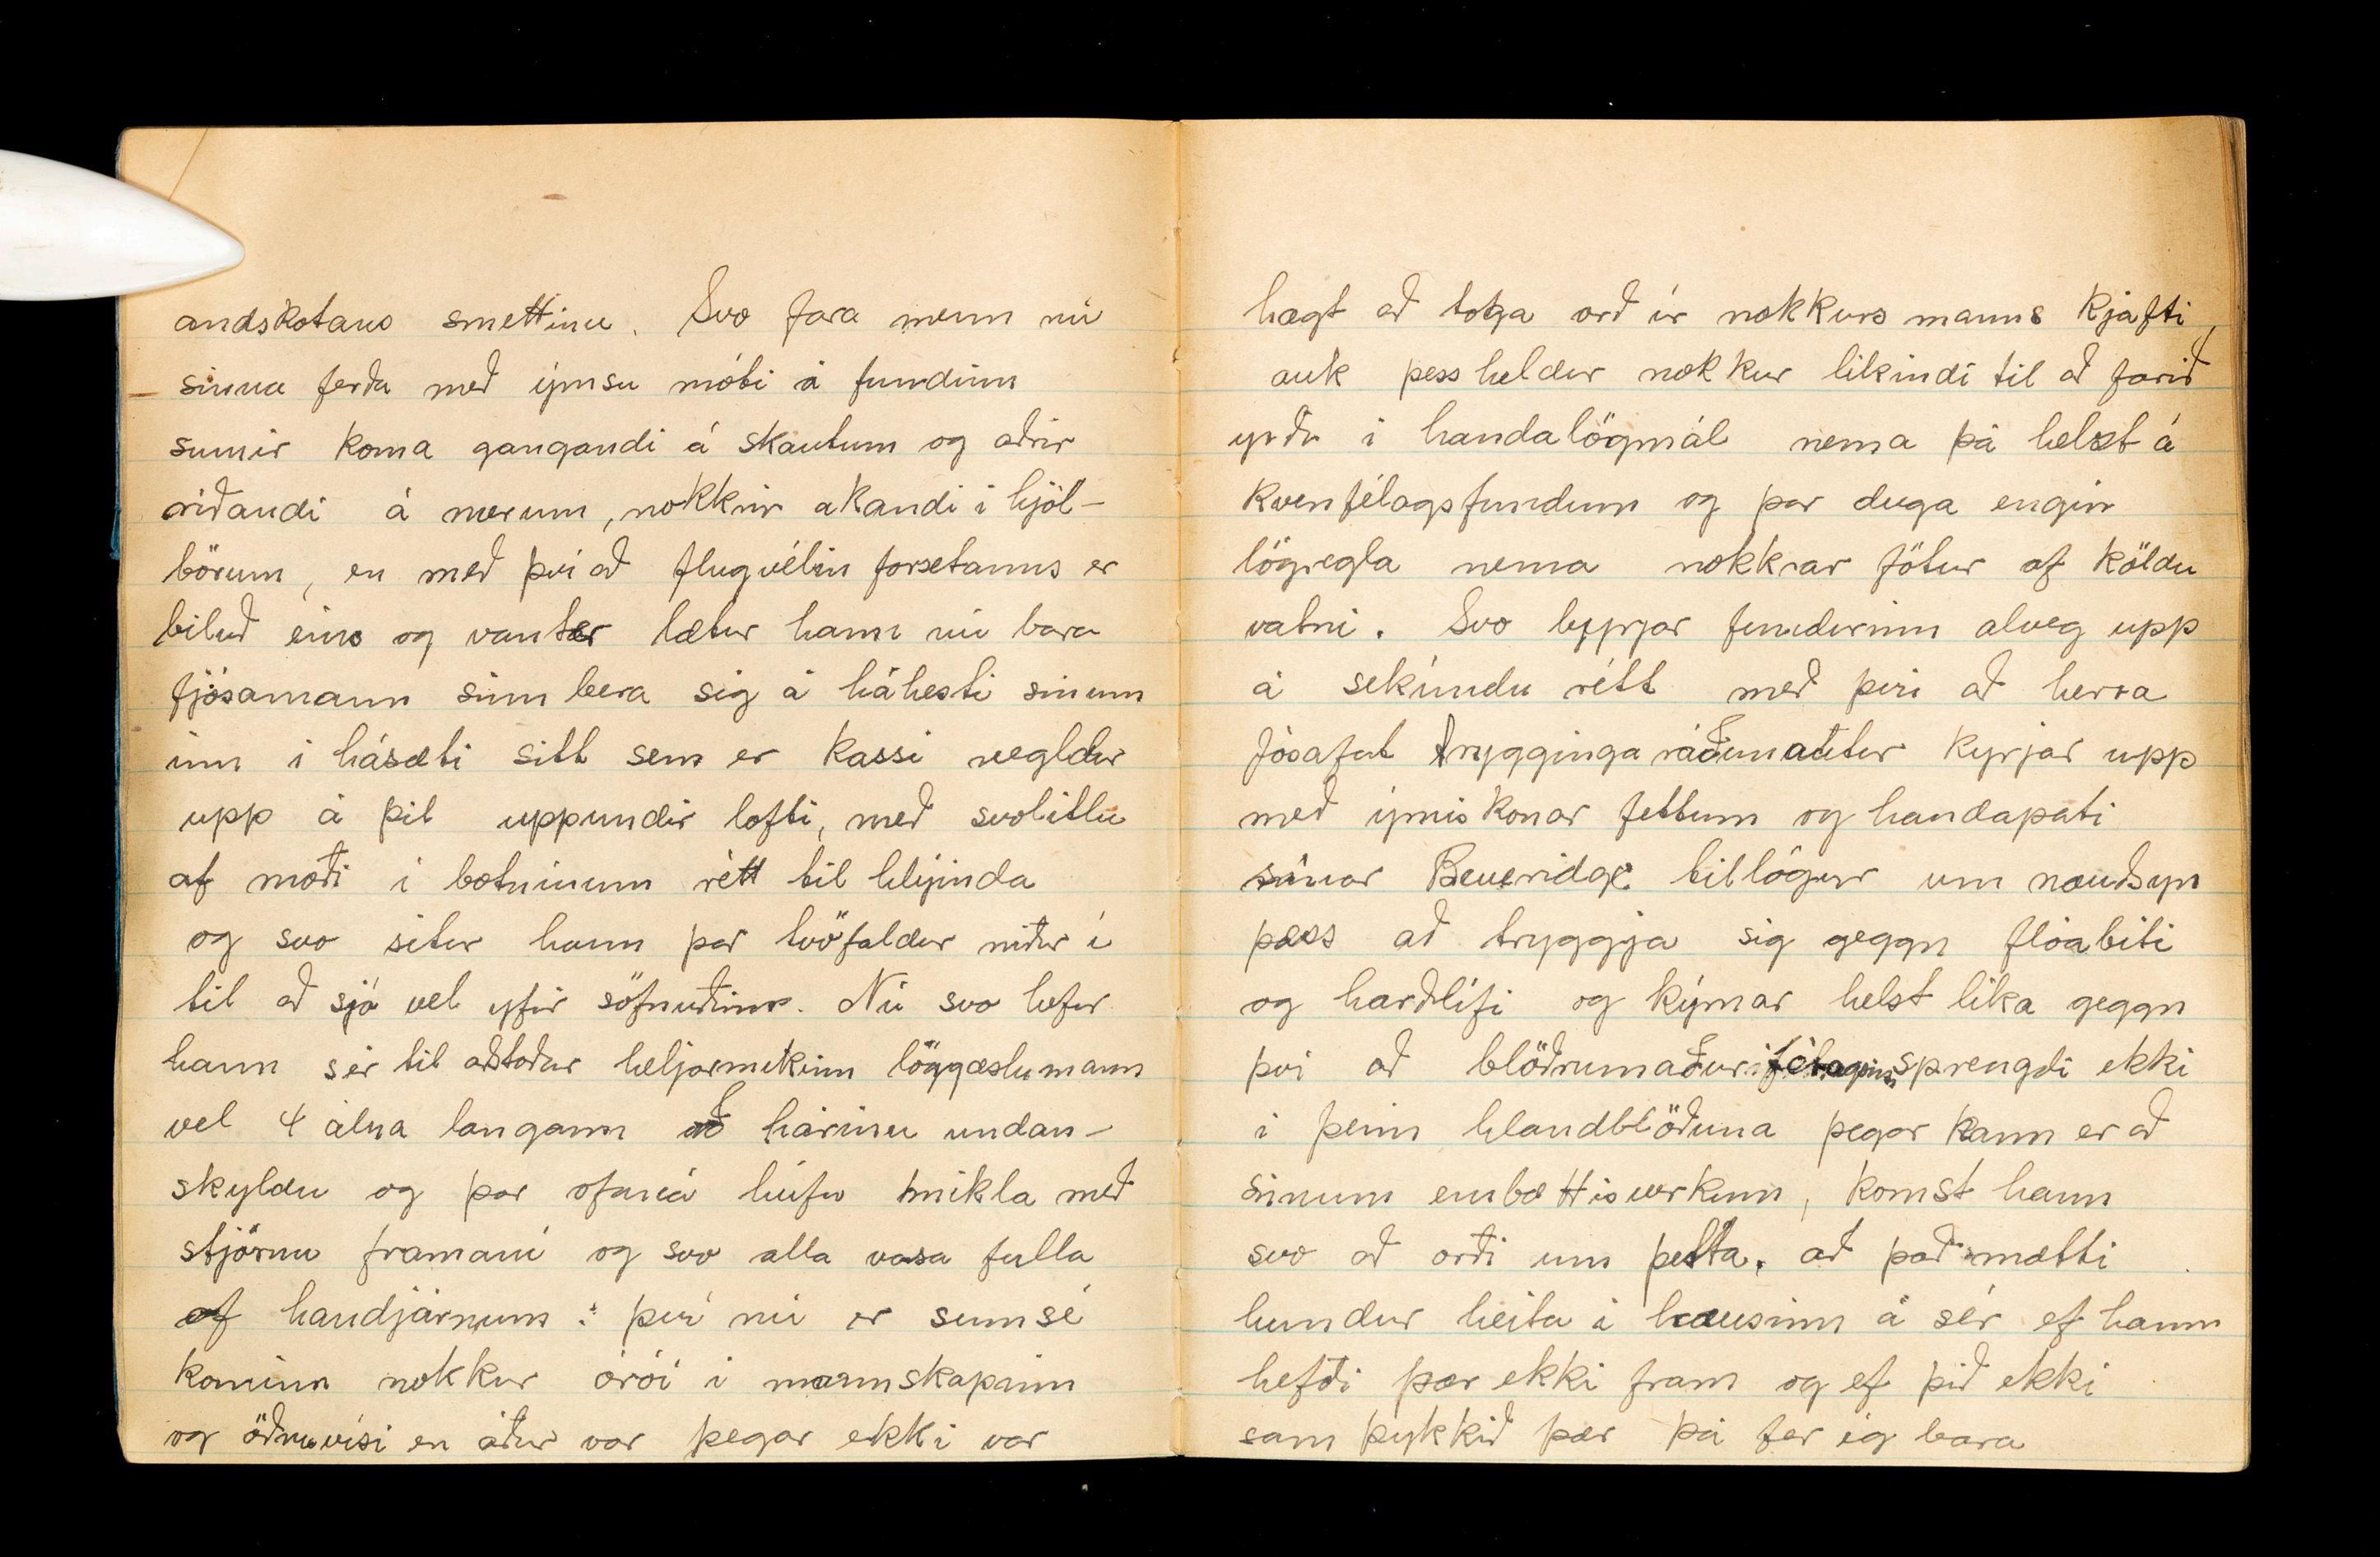 andskotans smettinu. Svo fara menn nú
sinna ferða með ýmsu móti á fundinn
sumir koma gangandi á skautum og aðrir
ríðandi á merum, nokkrir akandi í hjól-
börum, en með því að flugvélin forsetanns er
biluð eins og vanter lætur hann nú bara
fjósamann sinn bera sig á háhesti sínum
inn í hásæti sitt sem er kassi negldur
upp á þil uppundir lofti, með svolitlu
af moði í botninum rétt til hlýinda
og svo situr hann þar tvöfaldur niður í
til að sjá vel yfir söfnuðinn. Nú svo hefur
hann sér til aðstoðar heljarmikinn löggæslumann
vel 4 álna langann að hárinu undan-
skyldu og þar ofaná húfu mikla með
stjörnu framaní og svo alla vasa fulla
af handjárnum: því nú er sumsé
kominn nokkur órói í mannskapinn
og öðruvísi en áður var þegar ekki var
hægt að toga orð úr nokkurs manns kjafti,
auk þess heldur nokkur líkindi til að farið
yrði í handalögmál nema þá helst á
kvenfélagsfundum og þar duga engin
lögregla nema nokkrar fötur af köldu
vatni. Svo byrjar fundurinn alveg upp
á sekúndu rétt með því að herra
Jósafat trygginga ráðunautur kyrjar upp
með ýmiskonar fettum og handapati
sínar Beveridge tillögur um nauðsyn
þess að tryggja sig geggn flóabiti
og harðlífi og kýrnar helst líka geggn
því að blöðrumaðurifélaginu sprengdi ekki
í þeim hlandblöðruna þegar hann er að
sínum embættisverkum, komst hann
svo að orði um þetta, að það mætti
hundur heita í hausinn á sér ef hann
hefði þær ekki fram og ef þið ekki
sam þykkið þær þá fer ég bara